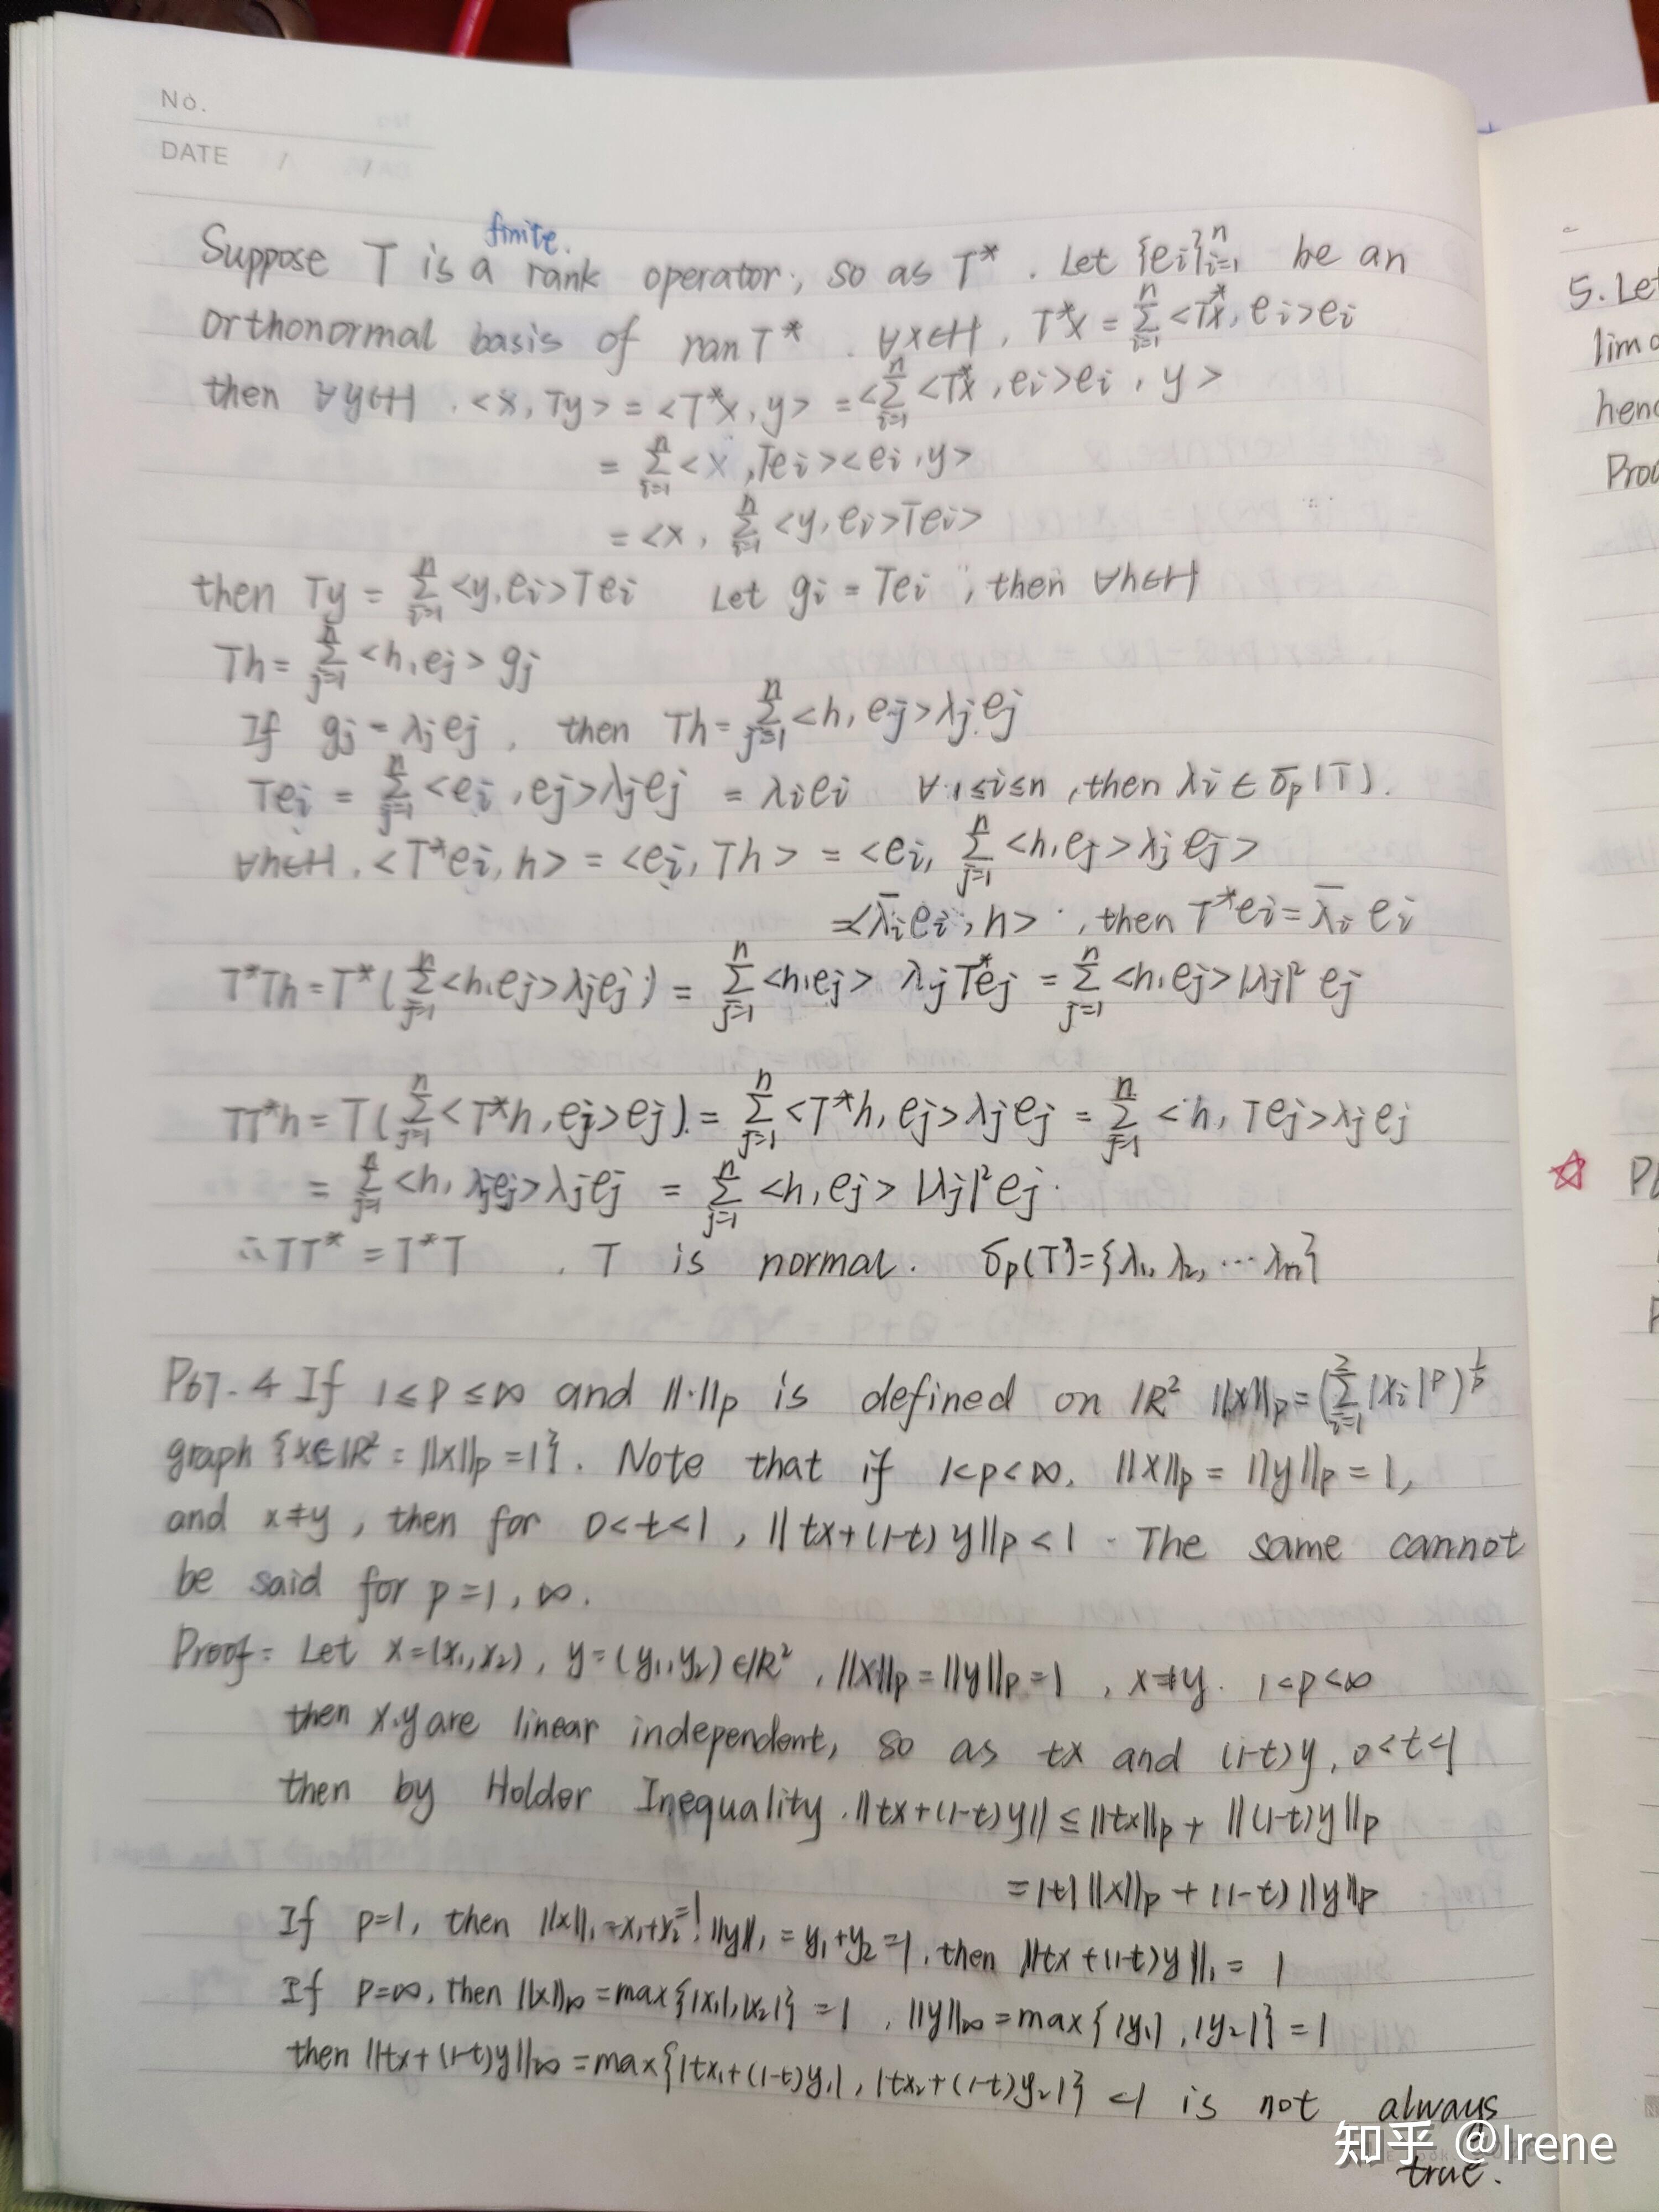 No.
DATE / /
finite.
Suppose T is a rank operator, so as T* . Let {ei}ⁿi=1 be an
orthonormal basis of ran T* . ∀x∈H, T*x = Σⁿi=1 <T*x, ei>ei
then ∀y∈H . <x, Ty> = <T*x, y> = <Σⁿi=1 <T*x, ei>ei , y>
= Σⁿi=1 <x, Tei><ei, y>
= <x, Σⁿi=1 <y, ei>Tei>
then Ty = Σⁿi=1 <y, ei>Tei Let gi = Tei , then ∀h∈H
Th = Σⁿj=1 <h, ej> gj
If gj = λjej , then Th = Σⁿj=1 <h, ej>λjej
Tei = Σⁿj=1 <ei, ej>λjej = λiei ∀ 1≤i≤n , then λi ∈ σp(T).
∀h∈H. <T*ei, h> = <ei, Th> = <ei, Σⁿj=1 <h, ej>λjej>
= <λ̄iei, h> , then T*ei = λ̄iei
T*Th = T*(Σⁿj=1 <h, ej>λjej) = Σⁿj=1 <h, ej> λjT*ej = Σⁿj=1 <h, ej>|λj|² ej
TT*h = T(Σⁿj=1 <T*h, ej>ej) = Σⁿj=1 <T*h, ej>λjej = Σⁿj=1 <h, Tej>λjej
= Σⁿj=1 <h, λjej>λjej = Σⁿj=1 <h, ej> |λj|²ej.
∴ TT* = T*T . T is normal. σp(T)={λ1, λ2, ... λm}
P67-4 If 1≤p≤∞ and ||·||p is defined on IR² ||x||p = (Σ²i=1 |xi|ᵖ)^1/p
graph {x∈IR² : ||x||p = 1}. Note that if 1<p<∞, ||x||p = ||y||p = 1,
and x≠y , then for 0<t<1 , ||tx+(1-t)y||p < 1 . The same cannot
be said for p=1, ∞.
Proof: Let x=(x1,x2), y=(y1,y2)∈IR² , ||x||p = ||y||p =1 , x≠y. 1<p<∞
then x.y are linear independent, so as tx and (1-t)y, 0<t<1
then by Holder Inequality . ||tx+(1-t)y|| ≤ ||tx||p + ||(1-t)y||p
= |t| ||x||p + (1-t) ||y||p
If p=1, then ||x||1 = x1+x2 = 1 ||y||1 = y1+y2 = 1, then ||tx+(1-t)y||1 = 1
If p=∞, then ||x||∞ = max{|x1|, |x2|} = 1 , ||y||∞ = max{|y1|, |y2|} = 1
then ||tx+(1-t)y||∞ = max{|tx1+(1-t)y1|, |tx2+(1-t)y2|} <1 is not always
true.
5. Let
lim
hen
Proo
知乎 @Irene